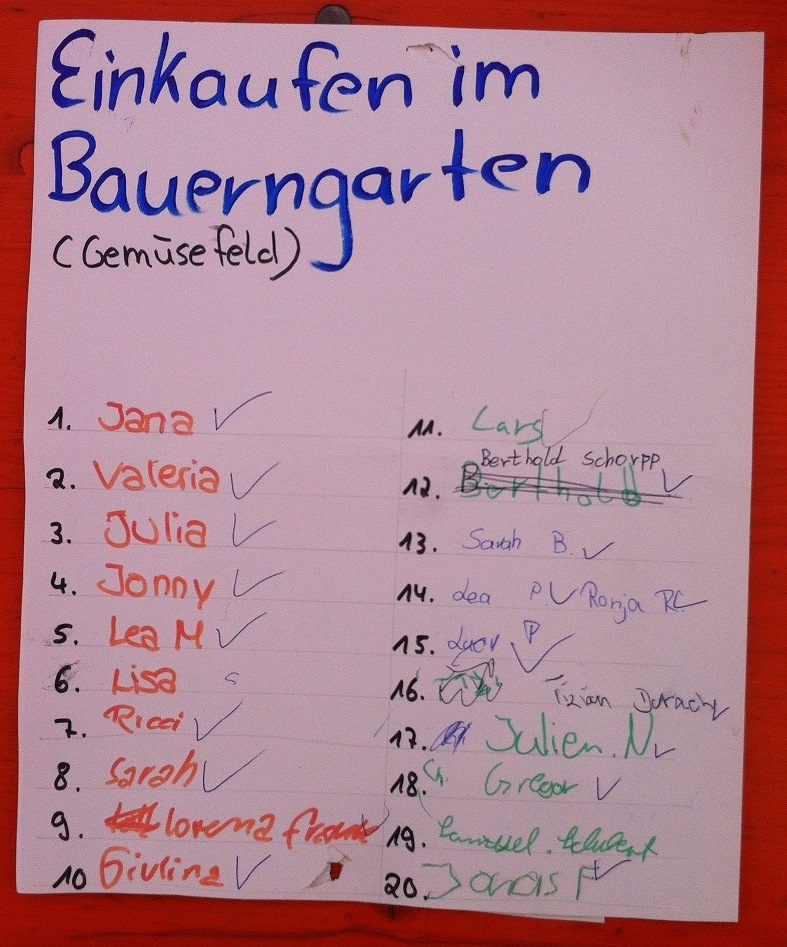 Einkaufen im
Bauerngarten
(Gemüsefeld)
1. Jana ✓
2. Valeria ✓
3. Julia ✓
4. Jonny ✓
5. Lea M ✓
6. Lisa
7. Ricci ✓
8. Sarah ✓
9. lorena
10 Giulina ✓
11. Lars ✓
Berthold Schorpp ✓
12. Berthold
13. Sarah B. ✓
14. Lea P. ✓ Ronja R. ✓
15. Lucy P ✓
16. Tizian ✓
17. Julien. N ✓
18. Gregor ✓
19.
20. Jonas F ✓